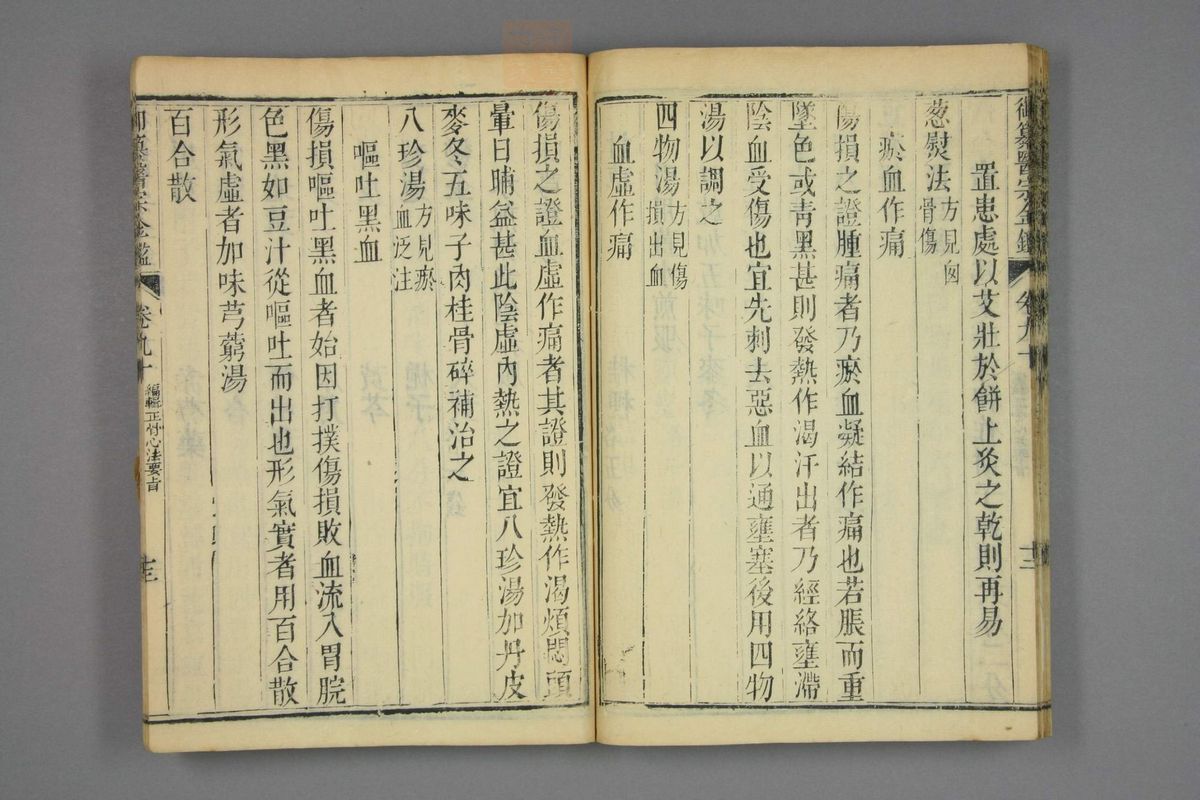 御纂醫宗金鑑 卷九十 十二
置患處以艾壯於餅上炙之乾則再易
葱熨法方見囟骨傷
瘀血作痛
傷損之證腫痛者乃瘀血凝結作痛也若脹而重
墜色或青黑甚則發熱作渴汗出者乃經絡壅滯
陰血受傷也宜先刺去惡血以通壅塞後用四物
湯以調之
四物湯方見傷損出血
血虛作痛
傷損之證血虛作痛者其證則發熱作渴煩悶頭
暈日晡益甚此陰虛內熱之證宜八珍湯加丹皮
麥冬五味子肉桂骨碎補治之
八珍湯方見瘀血泛注
嘔吐黑血
傷損嘔吐黑血者始因打撲傷損敗血流入胃脘
色黑如豆汁從嘔吐而出也形氣實者用百合散
形氣虛者加味芎藭湯
百合散
御纂醫宗金鑑 卷九十 編輯正骨心法要旨 十三